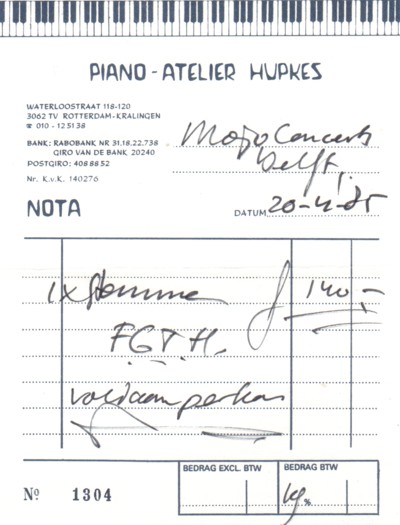 PIANO-ATELIER HUPKES
WATERLOOSTRAAT 118-120
3062 TV ROTTERDAM-KRALINGEN
☎ 010 - 125138
BANK: RABOBANK NR 31.18.22.738
GIRO VAN DE BANK 20240
POSTGIRO: 4088852
Nr. K.v.K. 140276
Mojo Concerts
Delft
NOTA
DATUM 20-4-'85
1x stemmen f 140,-
F.G.T.H.
voldaan per kas
BEDRAG EXCL. BTW BEDRAG BTW
%
No 1304